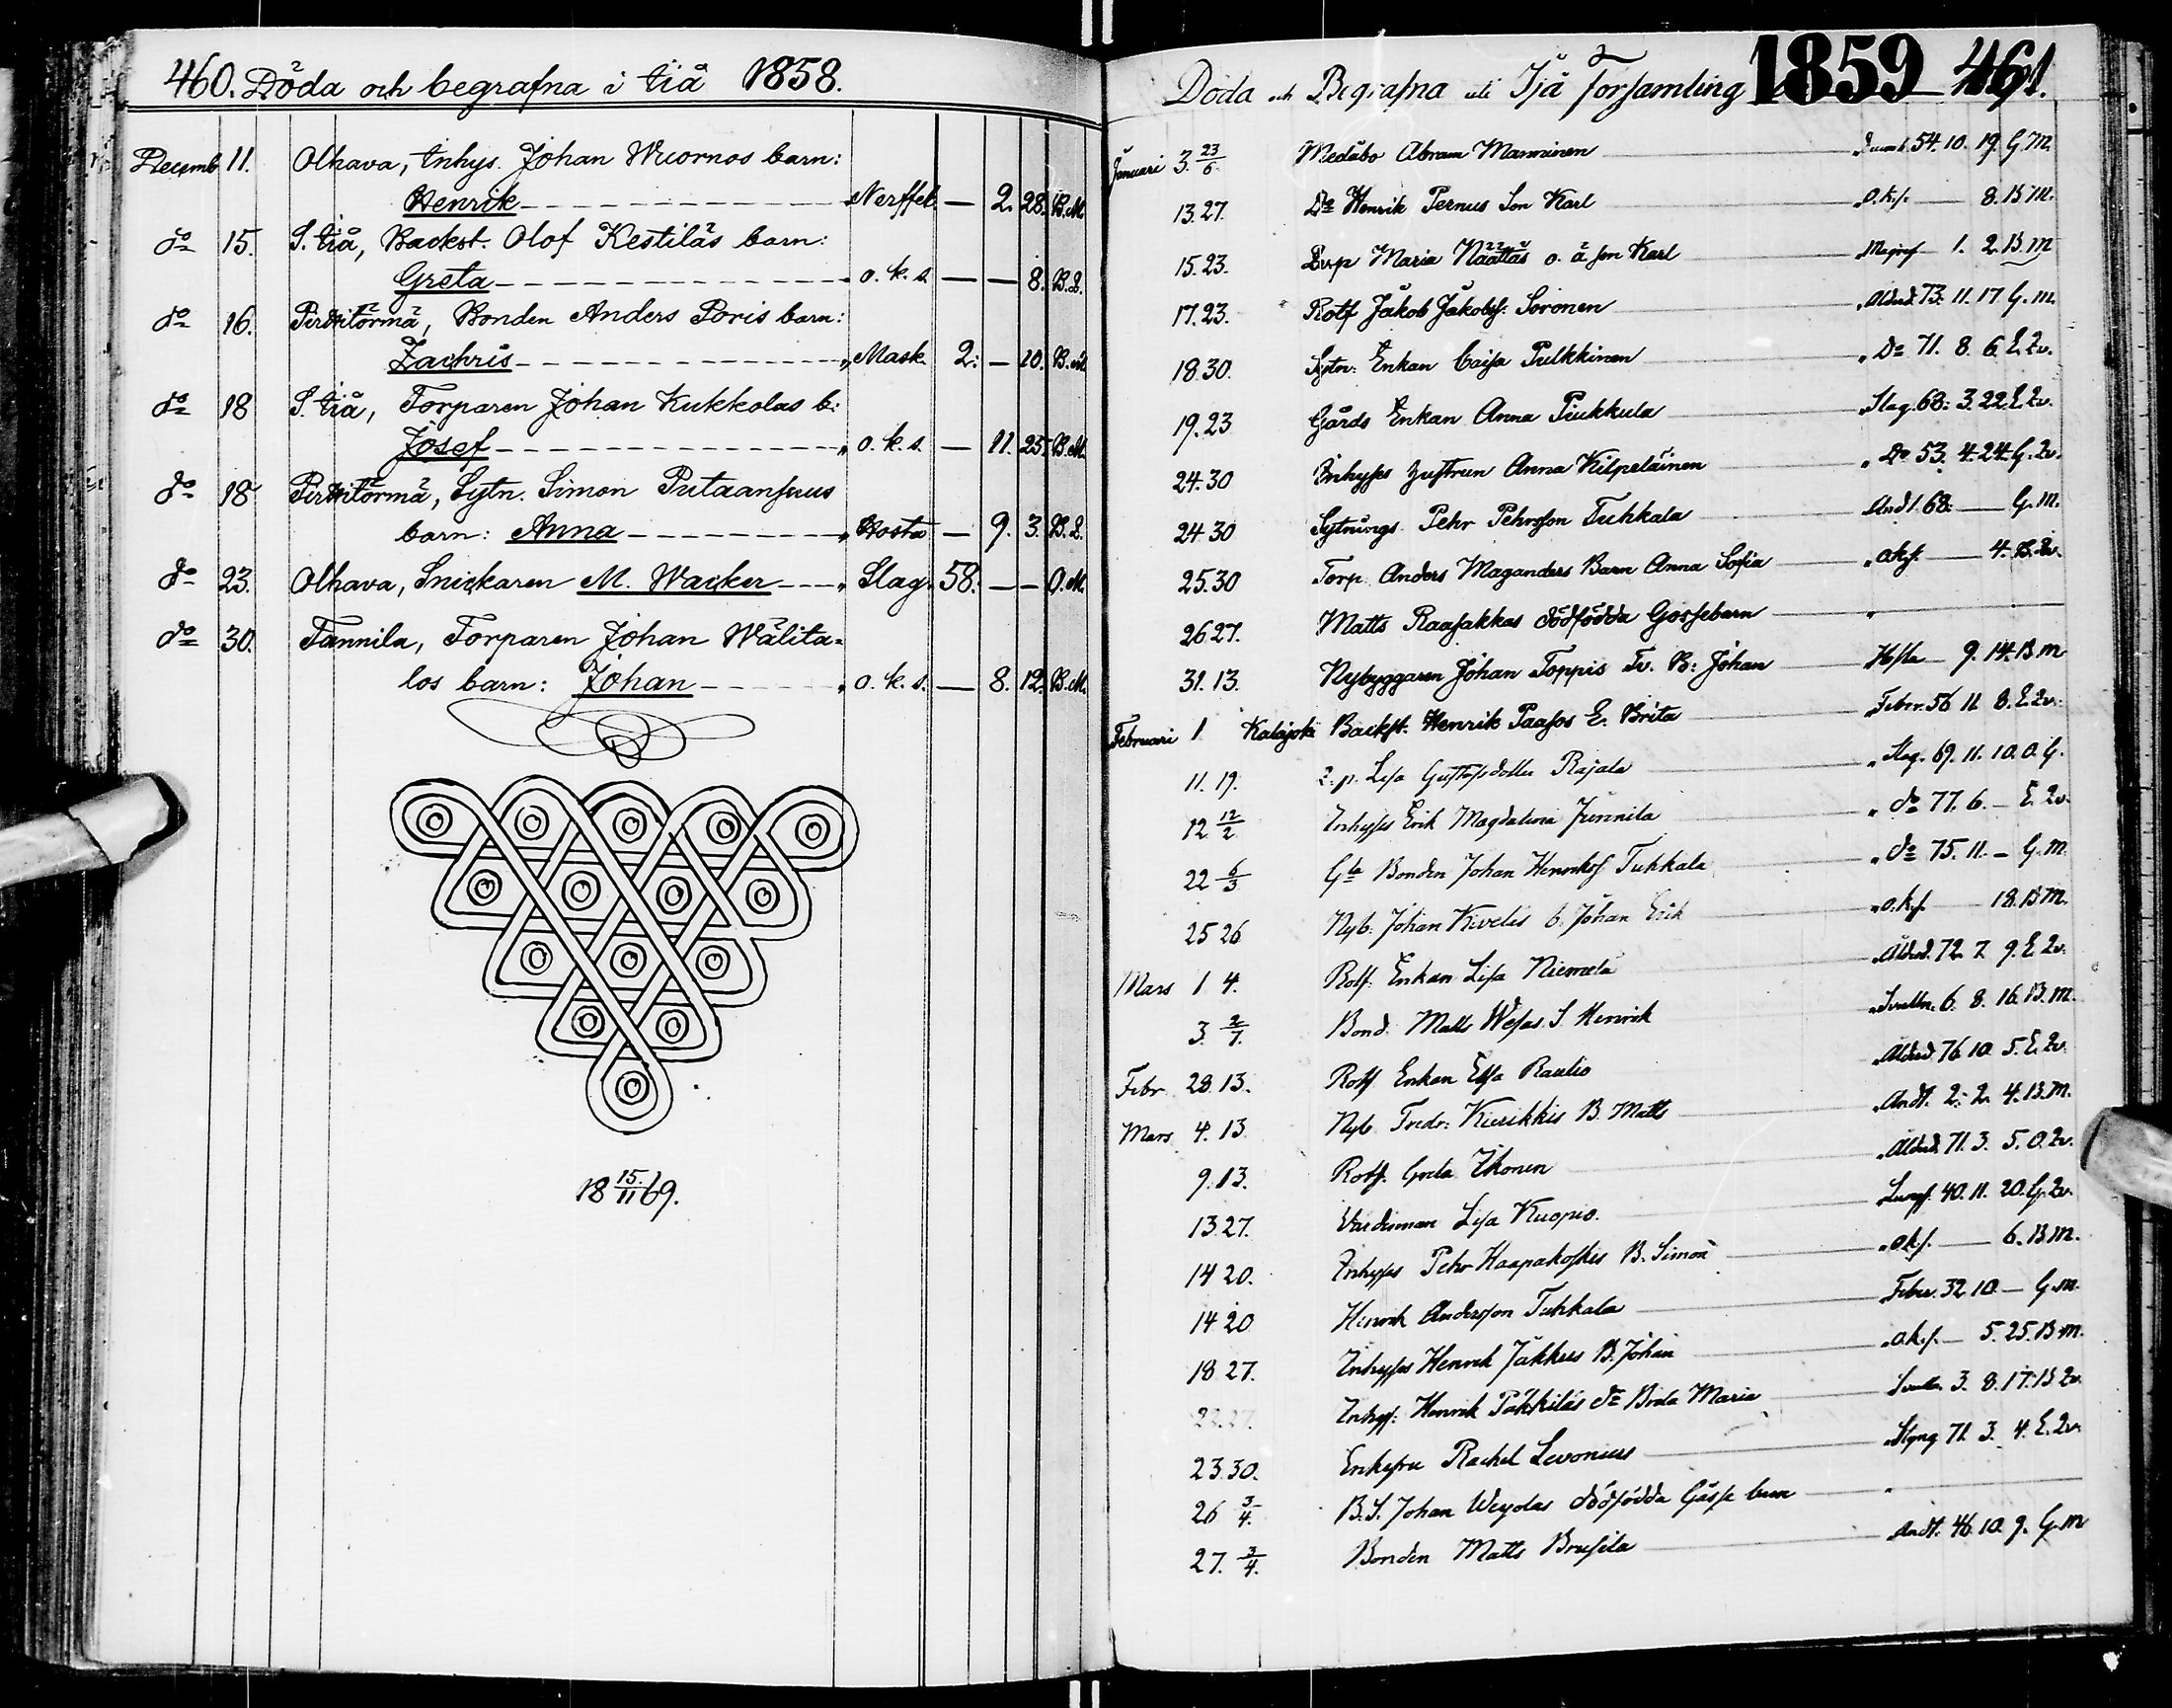 460. Döda och begrafna i Iiå 1858.
Decemb 11. Olhava, Inhys. Johan Wuornos barn:
Henrik „Nerffeb. — 2. 28. B.M.
do 15. S. Iiå, Backst. Olof Kestiläs barn:
Greta „o. k. s — — 8. B.L.
do 16. Pirttitörmä, Bonden Anders Poris barn:
Zachris „Mask 2: — 10. B.M.
do 18 S. Iiå, Torparen Johan Kukkolas b:
Josef „o. k. s. — 11. 25. B.M.
do 18 Pirttitörmä, Sytn. Simon
barn: Anna „Hosta — 9. 3. B.L.
do 23. Olhava, Snickaren M. Wacker „Slag. 58. — — O.M.
do 30. Tannila, Torparen Johan Wälita=
los barn: Johan „o. k. s. — 8. 12. B.M.
18 15/11 69.
Döda och Begrafna uti Ijå församling 1859 461.
Januari 3. 23/6 Abram Manninen 54. 10. 19. G.M.
13. 27. Do Henrik Pernus Son Karl „o.k.s. — 8. B.M.
15. 23. Maria Näättäs o. ä son Karl 1. 2. B.M
17. 23. Rotf Jakob Jakobs: Soronen „Åldsd. 73. 11. 17 G.m.
18. 30. Sytn: Enkan Caisa Pulkkinen „Do 71. 8. 6. E.Qv.
19. 23 Gårds Enkan Anna Piukkula „Slag. 68: 3. 22 E.Qv.
24. 30 Inhyses Hustrun Anna Kilpeläinen „Do 53. 4. 24. G.Qv.
24 30 Pehr Pehrsson Tuhkala „Andt. 68. — G.m.
25. 30 Torp. Anders Maganders Barn Anna Sofia „oks. — 4. B.Qv.
26 27. Matts Raasakkas dödfödda Gossebarn „
31. 13. Nybyggaren Johan Toppis Tv. B: Johan Hosta — 9. 14. B.M
Februari 1 Kalajoki Backst. Henrik Paasos E. Brita Feber. 56 11 8. E.Qv.
11. 19. Lisa Gustafsdotter Rajala „Slag. 69. 11. 10. O.G.
12 12/2 Inhyses Erik Magdalena Junnila „do 77. 6. — E.Qv.
22 6/3 Gla Bonden Johan Henriks Tuhkala „do 75. 11. — G.M.
25 26 Nyb. Johan Kiveläs b. Johan Erik „o.k.s. — 18. B.M.
Mars 1 4. Rotf. Enkan Lisa Niemelä „Åldsd. 72. 7. 9. E.Qv.
3. 2/7. Bond. Matts Wesas S. Henrik 6. 8. 16. B.M.
Febr. 28. 13. Rotf Enkan Elsa Raulio „Åldsd. 76 10. 5. E.Qv.
Mars 4. 13 Nyb. Fredr: Kierikkis B. Matts „Andt. 2. 2. 4. B.M.
9. 13. Rotf. Greta Ikonen „Åldsd. 71. 3. 5. O.Qv.
13 27. Lisa Kuopio. Lungs. 40. 11. 20. G.Qv.
14 20. Inhyses Pehr Haapakoskis B. Simon „oks. — 6. B.M.
14 20 Henrik Andersson Tuhkala Feber. 32 10 — G.M.
18 27. Inhyses Henrik Jakkus B. Johan „oks. — 5. 25. B.M.
22. 27. Inhys: Henrik Pakkiläs do Brita Maria 3. 8. 17. B.Qv.
23. 30. Enkefru Rachel Levonius 71. 3. 4. E.Qv.
26 3/4. B.S. Johan dödfödda Gåsse barn „
27. 3/4. Bonden Matts Brusila Andt. 46. 10. 9. G.M